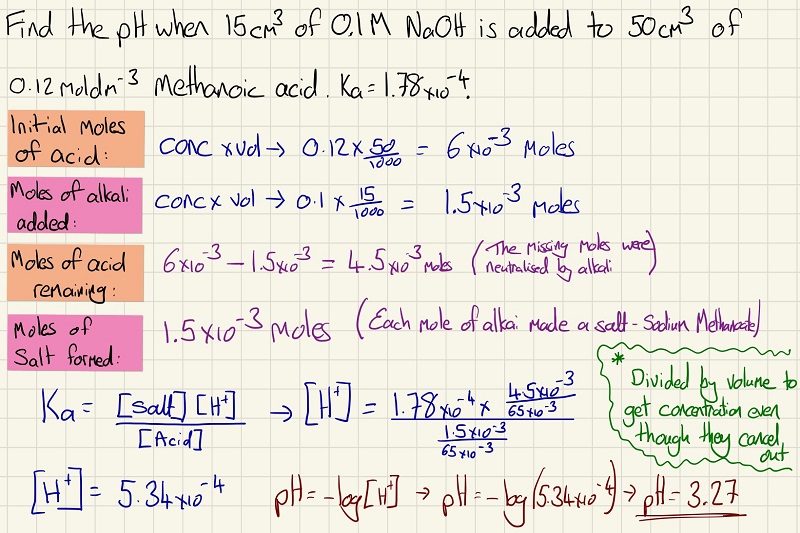 Find the pH when 15cm³ of 0.1M NaOH is added to 50cm³ of
0.12 moldm⁻³ Methanoic acid. Ka = 1.78×10⁻⁴.
Initial Moles of acid: conc × vol → 0.12 × 50/1000 = 6×10⁻³ Moles
Moles of alkali added: conc × vol → 0.1 × 15/1000 = 1.5×10⁻³ Moles
Moles of acid remaining: 6×10⁻³ − 1.5×10⁻³ = 4.5×10⁻³ moles (The missing moles were neutralised by alkali)
Moles of Salt formed: 1.5×10⁻³ moles (Each mole of alkai made a salt - Sodium Methanoate)
* Divided by volume to
get concentration even
though they cancel
out
Ka = [Salt][H⁺]/[Acid] → [H⁺] = (1.78×10⁻⁴ × 4.5×10⁻³/65×10⁻³)/(1.5×10⁻³/65×10⁻³)
[H⁺] = 5.34×10⁻⁴ pH = −log[H⁺] → pH = −log(5.34×10⁻⁴) → pH = 3.27